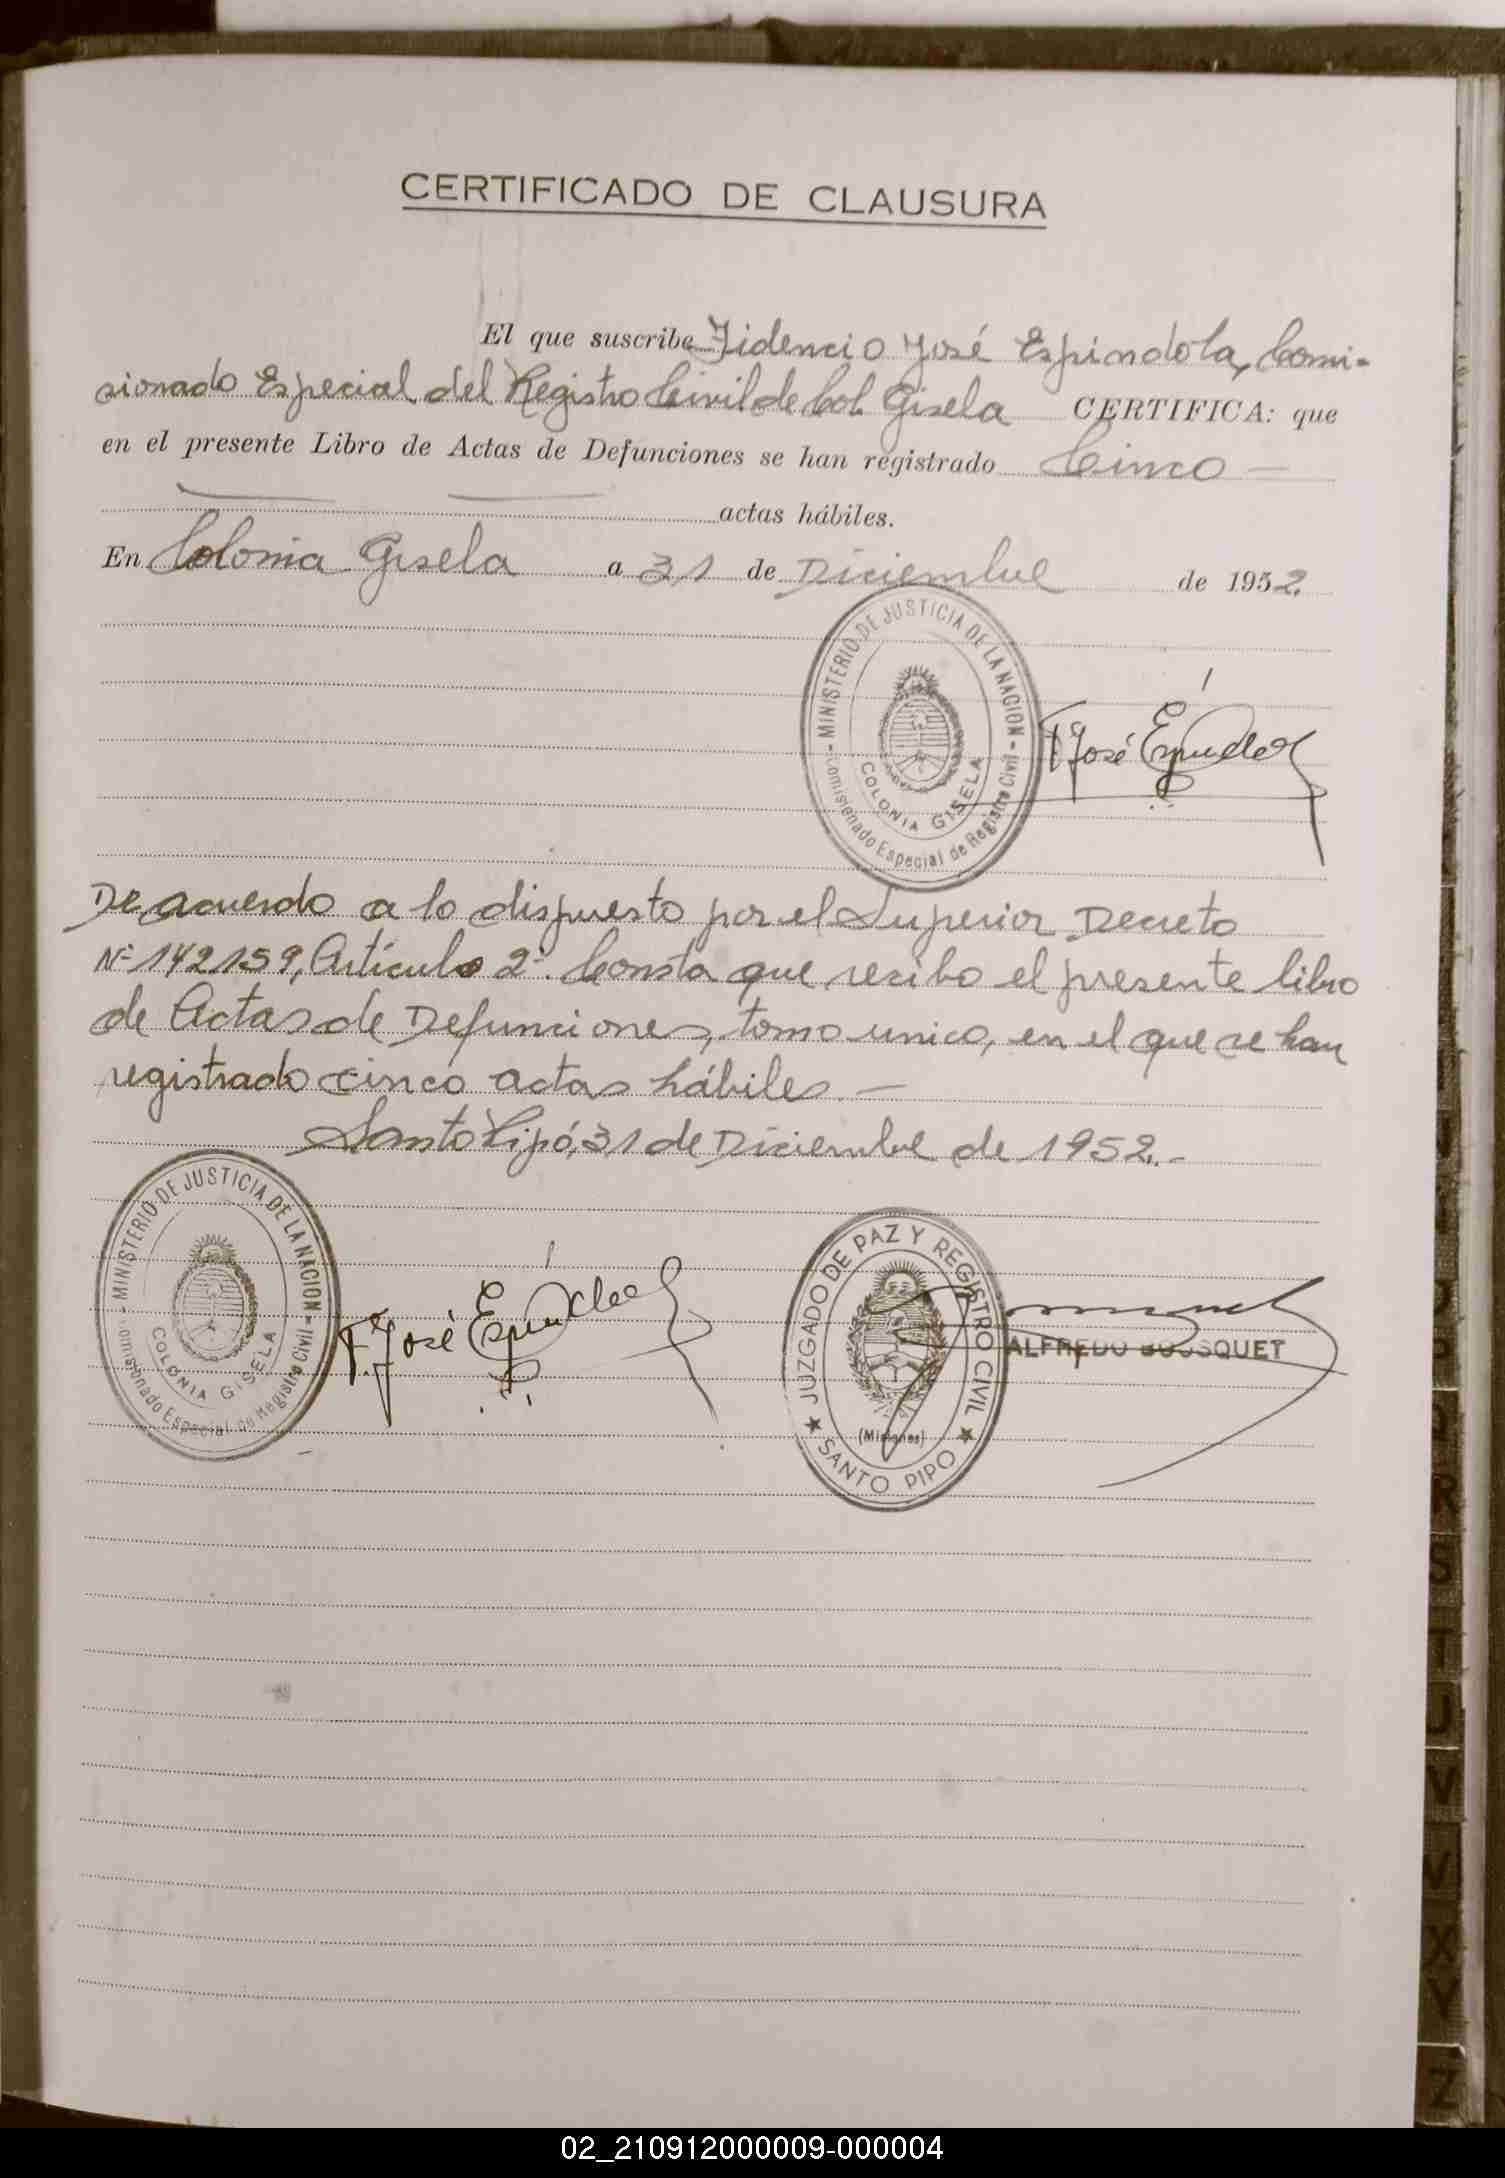 CERTIFICADO DE CLAUSURA
El que suscribe Fidencio José Espindola, Comi-
sionado Especial del Registro Civil de Col. Gisela CERTIFICA: que
en el presente Libro de Actas de Defunciones se han registrado Cinco —
actas hábiles.
En Colonia Gisela a 31 de Diciembre de 1952.
- MINISTERIO DE JUSTICIA DE LA NACION -
COLONIA GISELA
Comisionado Especial de Registro Civil
F. José Espíndola
De acuerdo a lo dispuesto por el Superior Decreto
Nº 142159, Artículo 2º. Consta que recibo el presente libro
de Actas de Defunciones, tomo unico, en el que se han
registrado cinco actas hábiles. —
Santo Pipó, 31 de Diciembre de 1952.-
- MINISTERIO DE JUSTICIA DE LA NACION -
COLONIA GISELA
Comisionado Especial de Registro Civil
F. José Espíndola
JUZGADO DE PAZ Y REGISTRO CIVIL
(Misiones)
★ SANTO PIPO ★
ALFREDO BOUSQUET
R
S
T
U
V
X
Y
Z
02_210912000009-000004